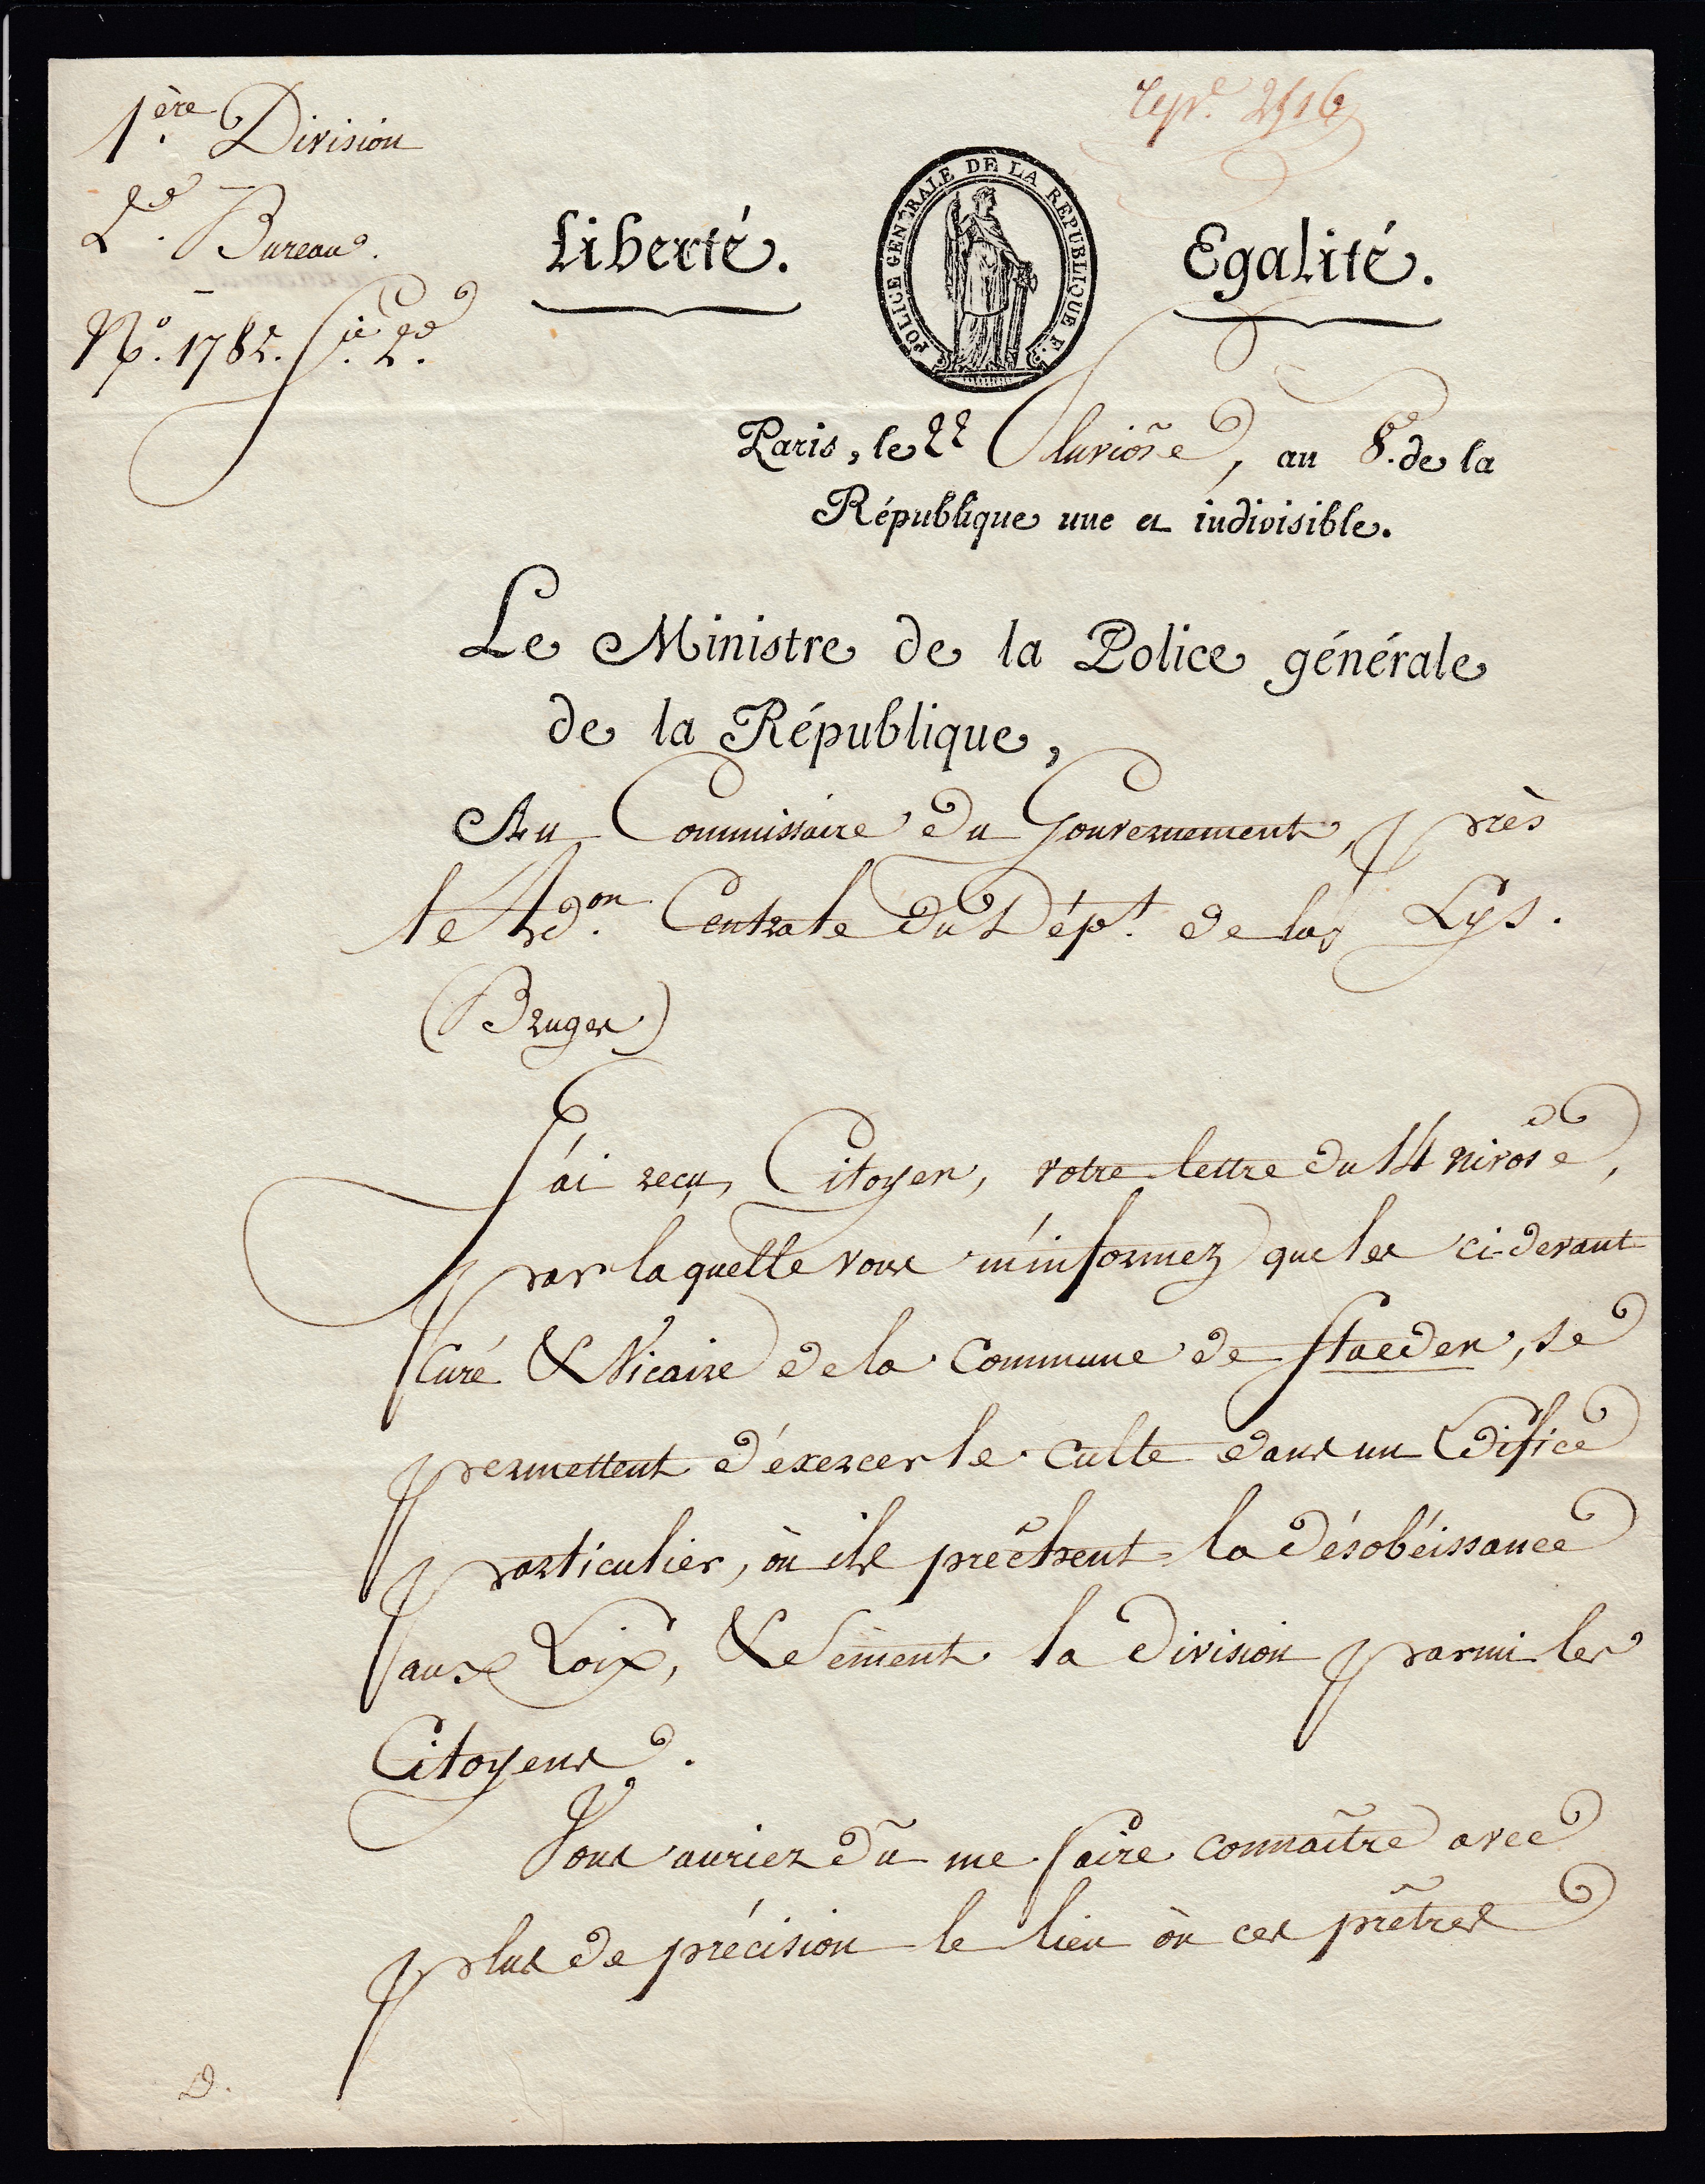 1.ère Division
2.de Bureau.
N.º 1785. S.ie 2.de
repre. 2516
Liberté.
POLICE GÉNÉRALE DE LA RÉPUBLIQUE F.
Egalité.
Paris, le 22 Pluviose, an 8.e de la
République une et indivisible.
Le Ministre de la Police générale
de la République,
Au Commissaire du Gouvernement, près
le Ad.on Centrale du Dépt. de la Lys.
(Bruges)
J'ai reçu, Citoyen, votre lettre du 14 nivose,
par laquelle vous m'informez que les ci-devant
Curé & Vicaire de la Commune de Staeden, se
permettent d'éxercer le culte dans un Edifice
particulier, où ils prêchent la désobéissance
aux Loix, & sèment la division parmi les
Citoyens.
Vous auriez dû me faire connaître avec
plus de précision le lieu où ces prêtres
D.